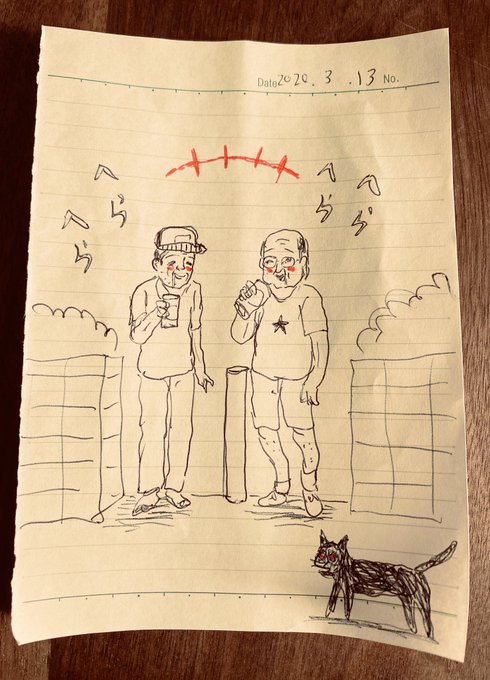 Date 2020. 3 .13 No.
へら
へら
へら
へら